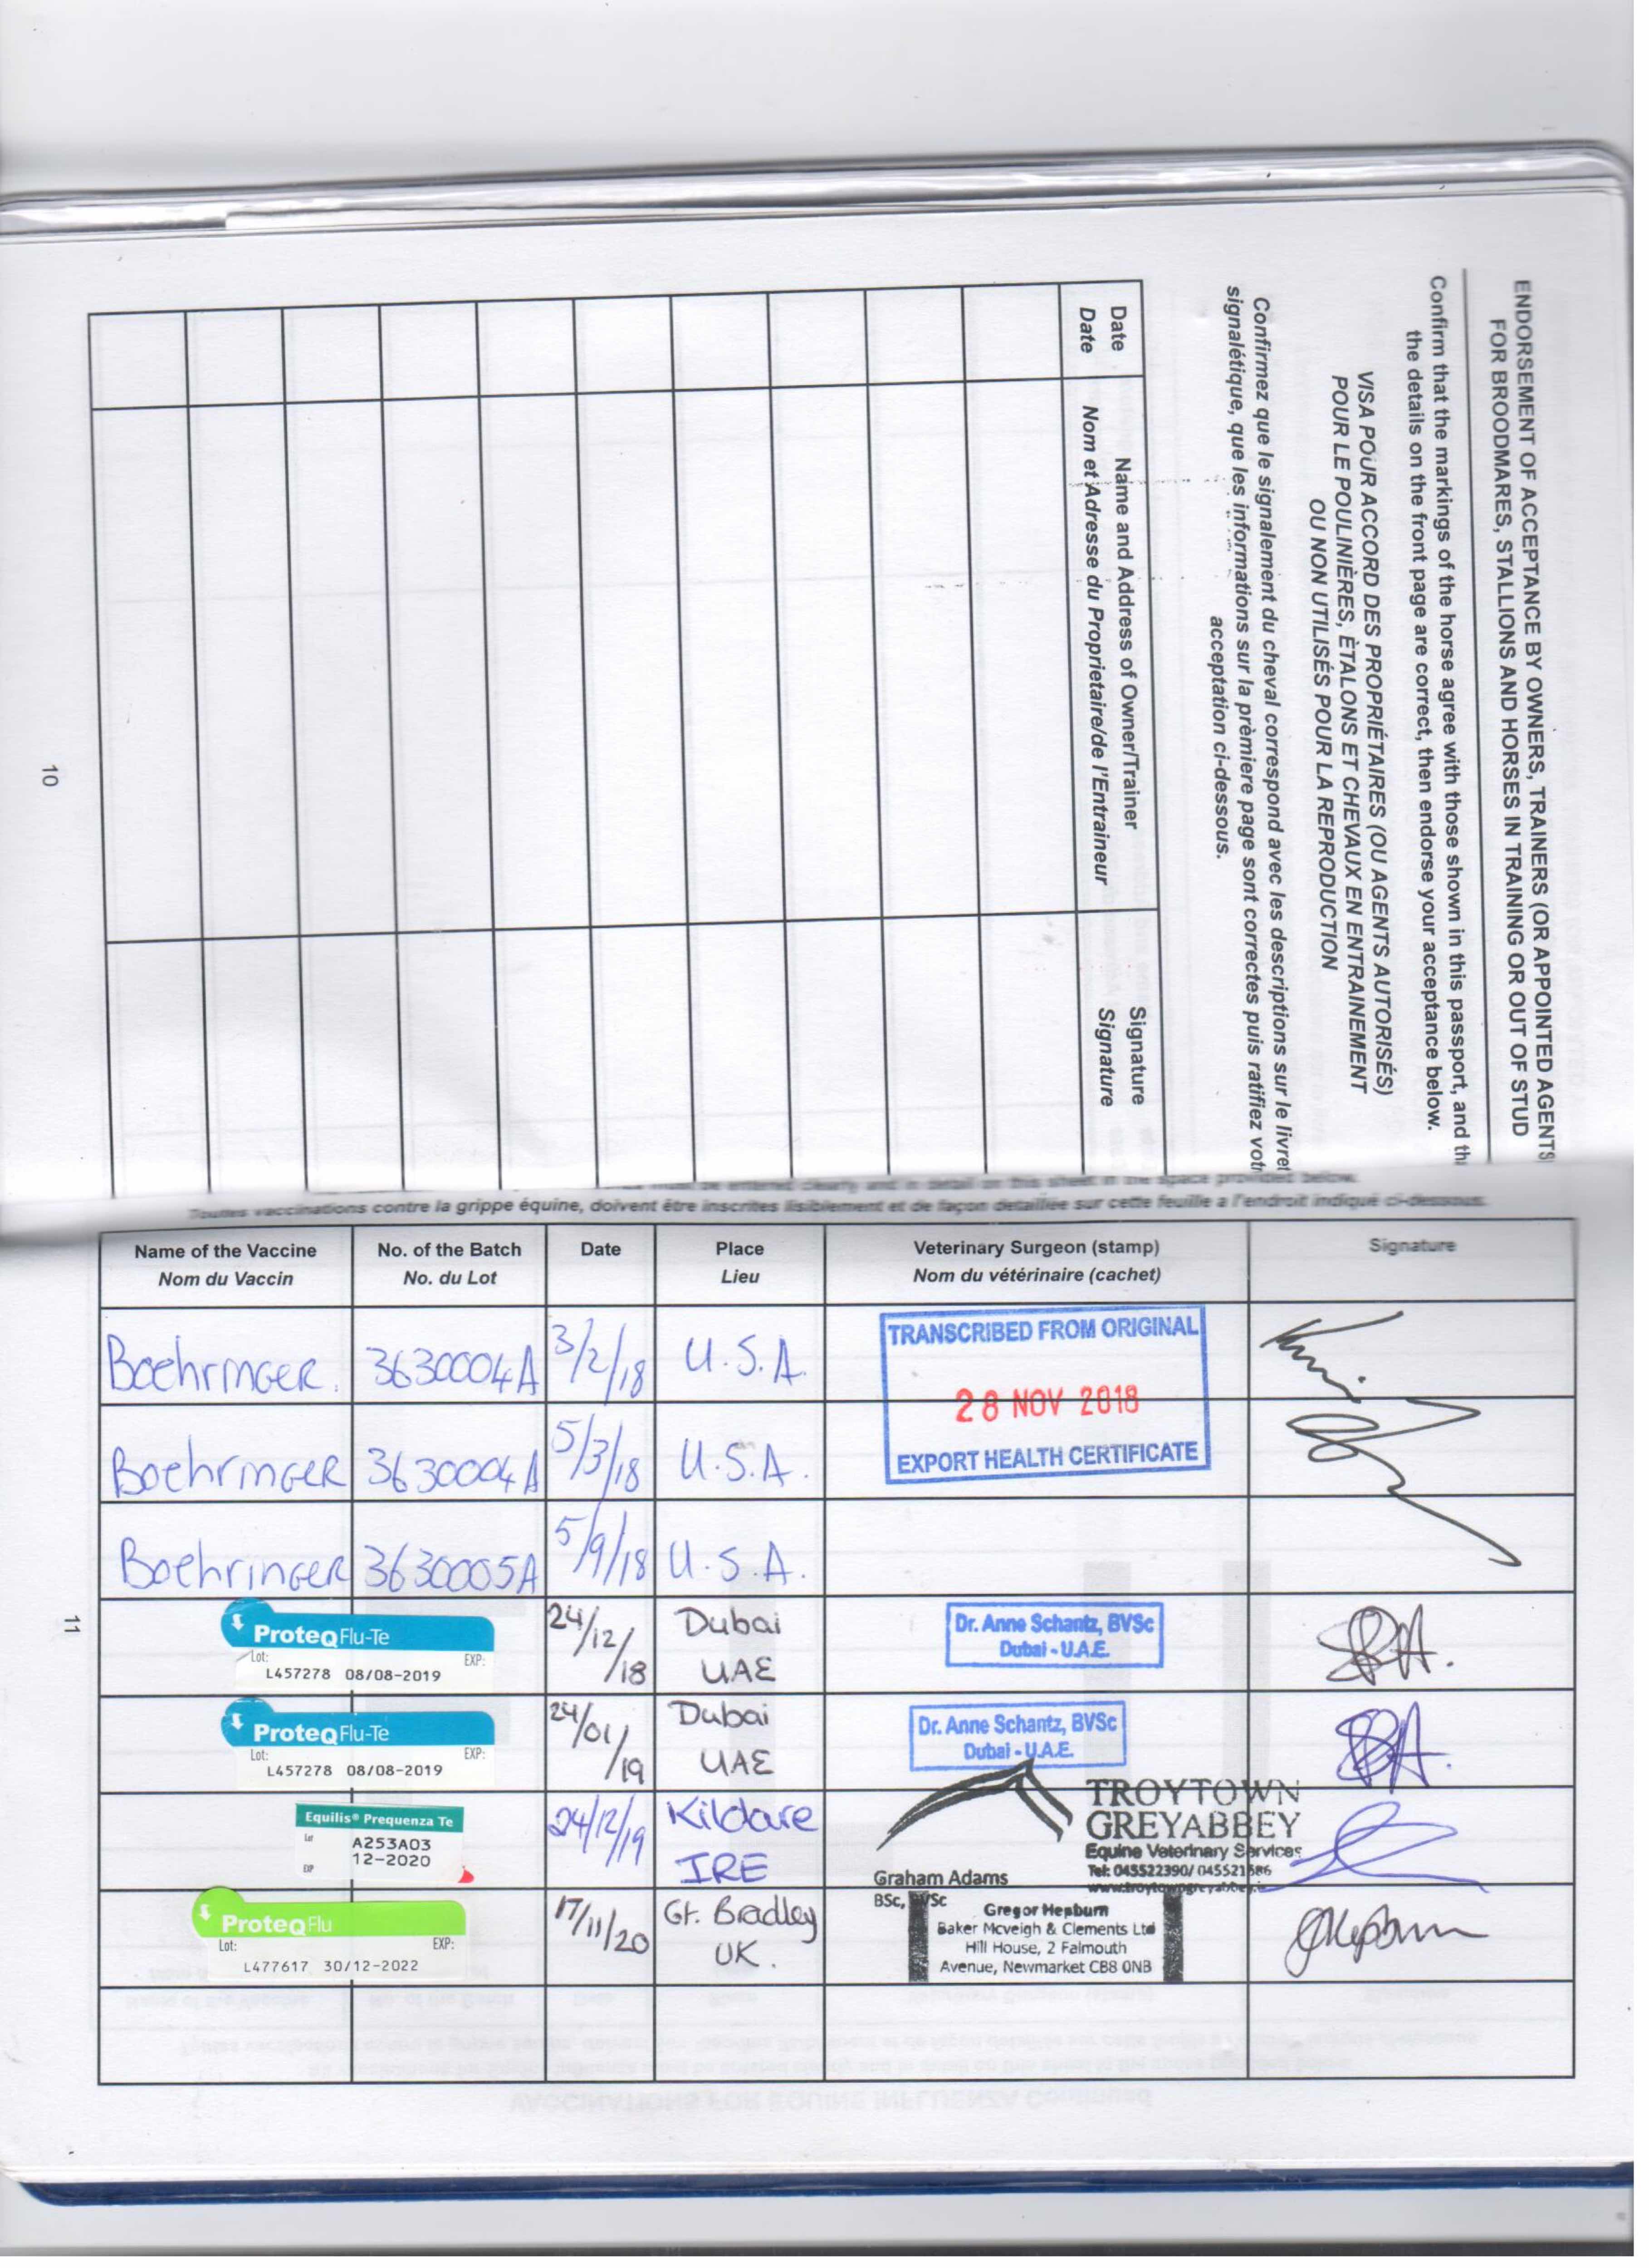 ENDORSEMENT OF ACCEPTANCE BY OWNERS, TRAINERS (OR APPOINTED AGENTS
FOR BROODMARES, STALLIONS AND HORSES IN TRAINING OR OUT OF STUD
Confirm that the markings of the horse agree with those shown in this passport, and tha
the details on the front page are correct, then endorse your acceptance below.
VISA POUR ACCORD DES PROPRIÉTAIRES (OU AGENTS AUTORISÉS)
POUR LE POULINIÈRES, ÈTALONS ET CHEVAUX EN ENTRAINEMENT
OU NON UTILISÉS POUR LA REPRODUCTION
Confirmez que le signalement du cheval correspond avec les descriptions sur le livret
signalétique, que les informations sur la prèmiere page sont correctes puis ratifiez votr
acceptation ci-dessous.
Date Name and Address of Owner/Trainer Signature
Date Nom et Adresse du Proprietaire/de l'Entraineur Signature
10
must be entered clearly and in detail on this sheet in the space provided below.
Toutes vaccinations contre la grippe équine, doivent être inscrites lisiblement et de façon detaillée sur cette feuille a l'endroit indiqué ci-dessous.
Name of the Vaccine No. of the Batch Date Place Veterinary Surgeon (stamp) Signature
Nom du Vaccin No. du Lot Lieu Nom du vétérinaire (cachet)
Boehringer. 3630004A 3/2/18 U.S.A. TRANSCRIBED FROM ORIGINAL
28 NOV 2018
Boehringer 3630004A 5/3/18 U.S.A. EXPORT HEALTH CERTIFICATE
Boehringer 3630005A 5/9/18 U.S.A.
ProteqFlu-Te 24/12/18 Dubai Dr. Anne Schantz, BVSc
Lot: EXP: UAE Dubai - U.A.E.
L457278 08/08-2019
ProteqFlu-Te 24/01/19 Dubai Dr. Anne Schantz, BVSc
Lot: EXP: UAE Dubai - U.A.E.
L457278 08/08-2019
Equilis® Prequenza Te 24/12/19 Kildare TROYTOWN
Lot A253A03 IRE GREYABBEY
EXP 12-2020 Equine Veterinary Services
Tel: 045522390/ 045521686
Graham Adams www.troytowngreyabbey.ie
BSc, BVSc
ProteqFlu 17/11/20 Gt. Bradley Gregor Hepburn
Lot: EXP: UK. Baker Mcveigh & Clements Ltd
L477617 30/12-2022 Hill House, 2 Falmouth
Avenue, Newmarket CB8 0NB
11